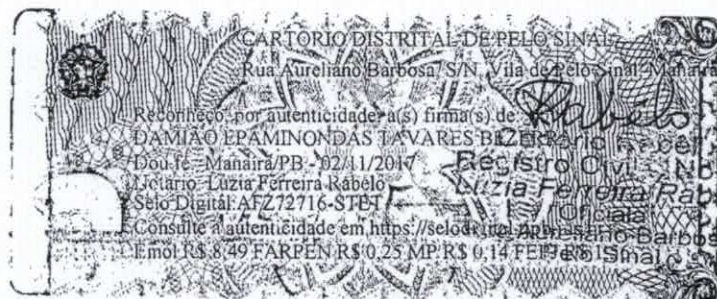 CARTÓRIO DISTRITAL DE PELO SINAL
Rua Aureliano Barbosa, S/N, Vila de Pelo Sinal, Manaíra
Reconheço, por autenticidade a(s) firma(s) de
DAMIÃO EPAMINONDAS TAVARES
Dou fé. Manaíra/PB - 02/11/2017
Notário: Luzia Ferreira Rabelo
Selo Digital: AFZ72716-STET
Consulte a autenticidade em https://selodigital
Emol R$ 8,49 FARPEN R$ 0,25 MP R$ 0,14 FEPJ R$
Rabélo
Registro Civil
Luzia Ferreira Rab
Oficiala
Sinal